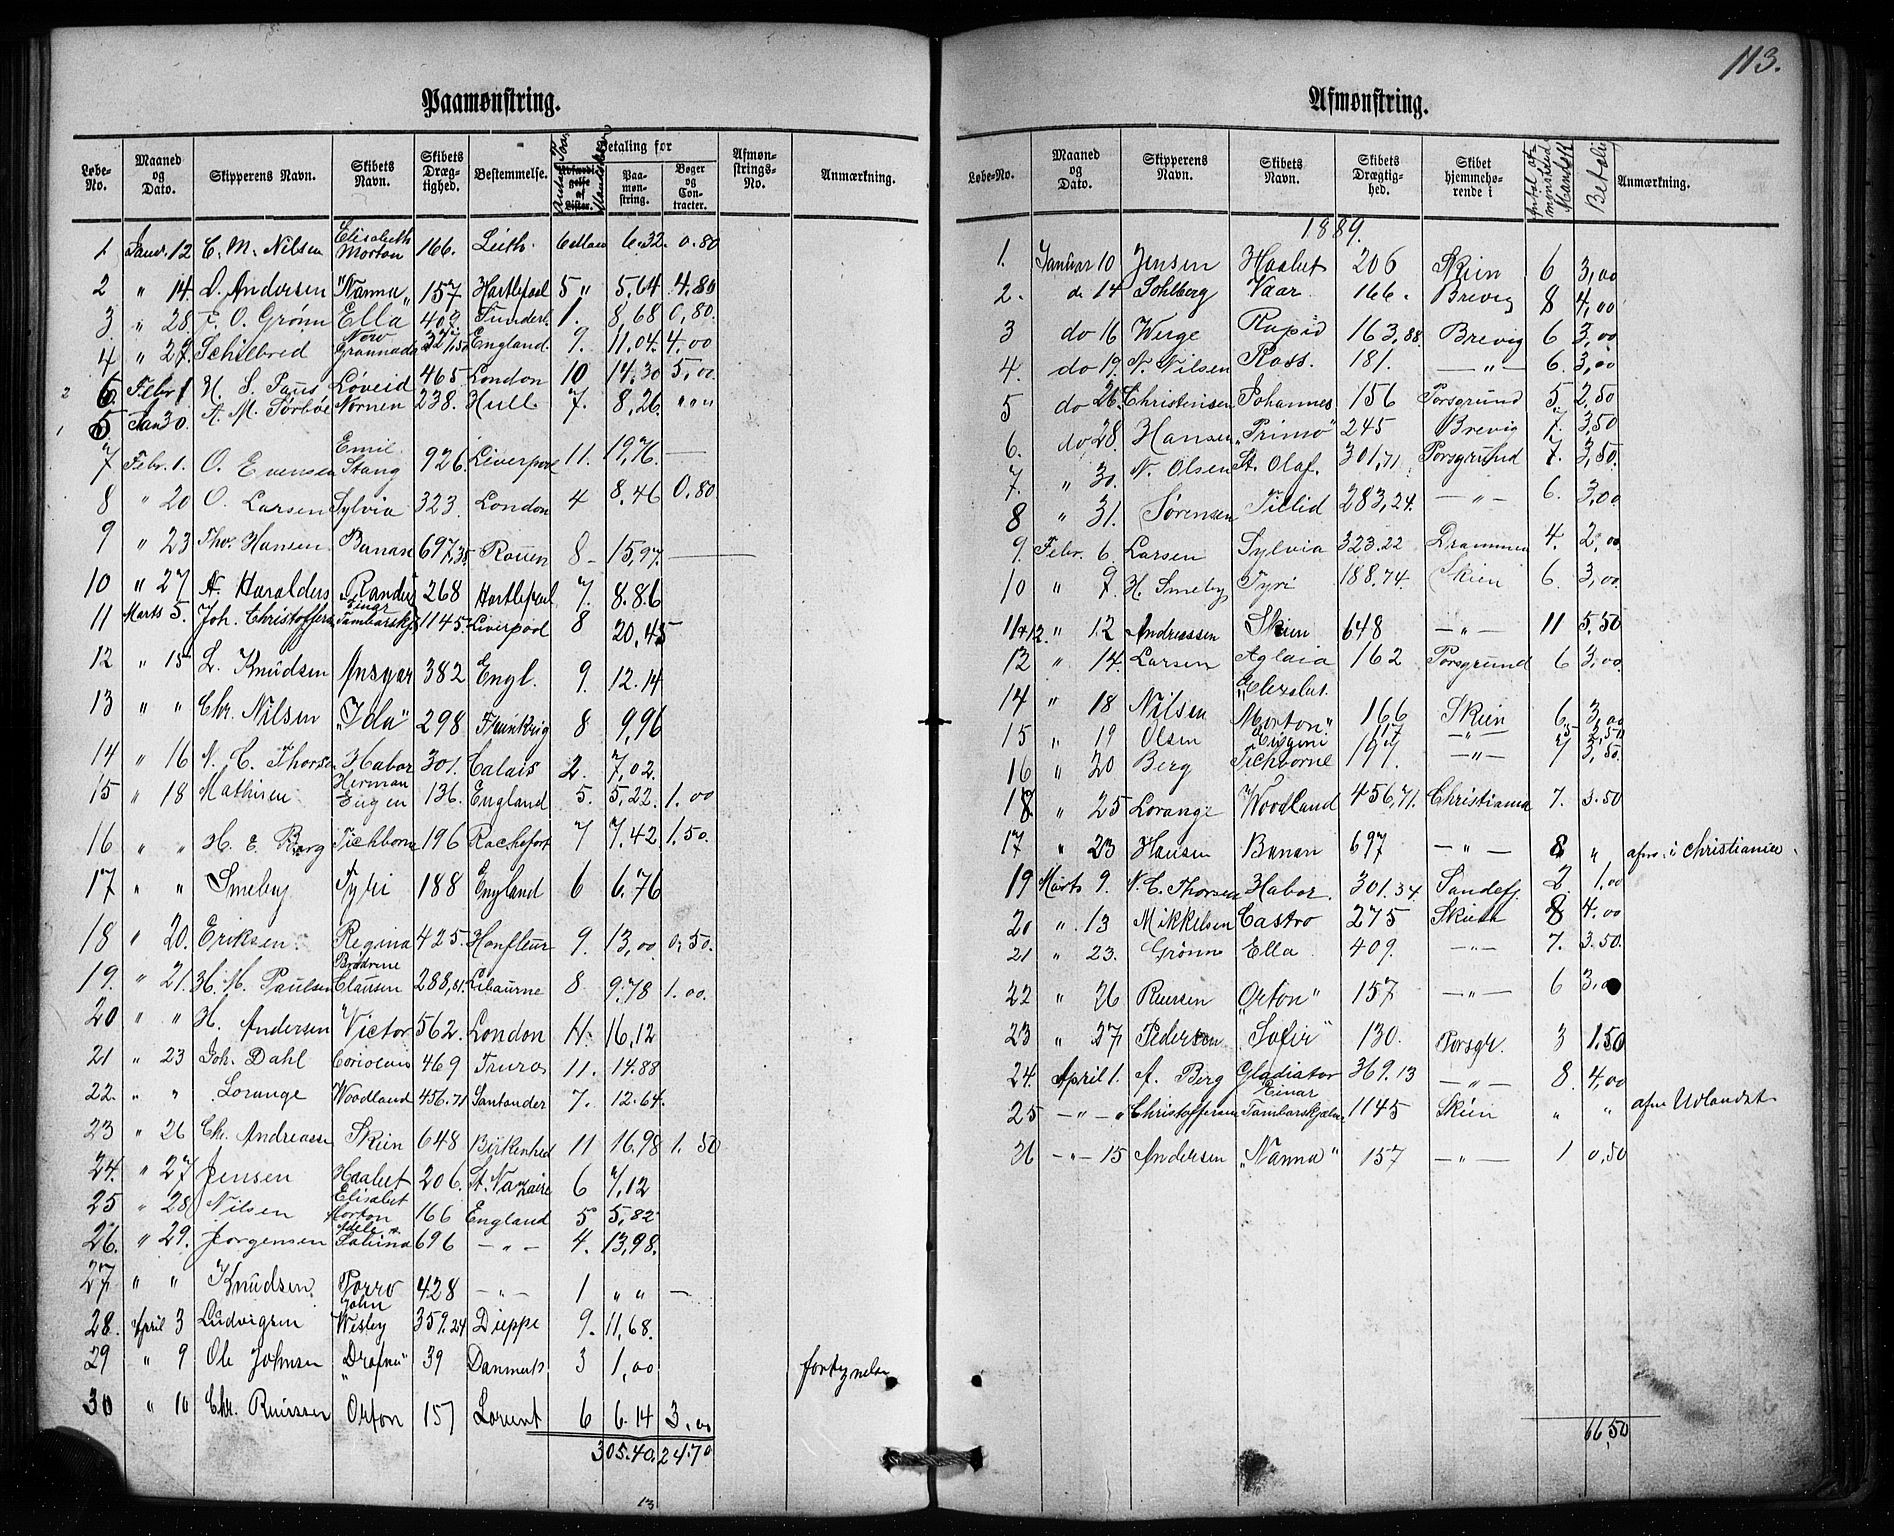 113.
Paamønstring.
Løbe-No. Maaned og Dato. Skipperens Navn. Skibets Navn. Skibets Drægtighed. Bestemmelse. Betaling for Paamønstring. Bøger og Contracter. Afmønstrings-No. Anmærkning.
1 Janu. 12 C. M. Nilsen Elisabeth Morton 166. Leith. 6 Man 6.32. 0.80
2 " 14. D. Andersen "Nanna" 157 Hartlepool 5 " 5,64. 4,80
3 " 28. F. O. Grønn Ella 409. Sunderl. 1. 8,68 0,80.
4 " 27. Schilbred Novo Grannada England. 9. 11,04. 4,00
2 6. Febr 1 H. S. Paus Løveid 465. London 10 14.30 5,00.
1 5 Jan 30. A. M. Sørbøe Nornen 238. Hull 7. 8,26. " " "
7 Febr. 1. O. Evensen Emil Stang 926. Liverpool 11. 19,76. —
8 " 20 O. Larsen Sylvia 323. London 4 8,46 0,80.
9 " 23 Thv. Hansen Banan 697,35 Rouen 8 - 15,97. —
10 " 27 A. Haralds Randi 268 Hartlepool 7. 8.86
11 Marts 5. Joh. Christoffersen Einar Tambarskj. 1145. Liverpool 8 20,45
12 " 15 L. Knudsen Ansgar 382 Engl. 9. 12.14
13 " " Chr. Nilsen "Ida" 298 8 9,96
14 " 16 N. C. Thorsen Habor 301. Calais 2. 7,02.
15 " 18 Mathisen Herman Eugen 136. England 5. 5,22. 1.00
16 " " H. E. Berg Tichborne 196 Rochefort 7 7.42. 1,50.
17 " " Smeby Tyri 188 England 6 6.76
18 " 20. Eriksen Regina 425. Honfleur 9. 13,00 0,50.
19. " 21. H. M. Paulsen Brødrene Clausen 288,81. Libourne 8 9,78 1.00.
20 " " H. Andersen Victor 562. London 11. 16,12
21 " 23 Joh. Dahl Coriolanis 469 Truro 11. 14.88
22. " " Lorange Woodland 456.71 Santander 7. 12.64.
23 " 26 Ch. Andreasen Skien 648 Birkenhed 11 16.98 1.50
24. " 27 Jensen Haabet 206. St. Nazaire 6 7,12
25 " 28 Nilsen Elisabet Morton 166 England 5 5,82
26. " 29. Jørgensen Adele & Sabina 696 — " — 4. 13,98.
27 " " Knudsen. Porro 428 — " — 1 " " —
28. April 3 Ludvigsen John Wesley 359.24 Dieppe 9. 11,68.
29 " 9 Ole Johnsen "Drafni" 39 Danmark 3 1,00 fortynelse
30 " 10 Chr. Ruinssen Orton 157 Lorient 6 6.14 3.00
305.40. 24.70
13
Afmønstring.
Løbe-No. Maaned og Dato. Skipperens Navn. Skibets Navn. Skibets Drægtighed. Skibet hjemmehørende i Antal afmønstred Mandsk. Betaling Anmærkning.
1889.
1. Januar 10 Jensen Haabet 206 Skien 6 3,00
2. do 14 Sohlberg Vaar 166. Brevig 8 4,00
3 do 16 Werge Rapid 163,88. Brevig 6 3,00
4. do 19. N. Nilsen Ross. 181. — " — 6. 3,00
5 do 26. Christensen Johannes 156 Porsgrund 5. 2,50
6. do 28. Hansen "Primo" 245 Brevig 7. 3,50
7. " 30. N. Olsen St. Olaf. 301,71. Porsgrund 7. 3,50.
8 " 31. Sørensen Tillid 283,24. — " — 6. 3,00
9. Febr. 6 Larsen Sylvia 323.22 Drammen 4. 2,00
10 " 9. H. Smeby Tyri 188.74. Skien 6. 3,00
11/12. " 12 Andreassen Skien 648 — " — 11 5.50
13 " 14. Larsen Aglaia 162 Porsgrund 6 3,00
14 " 18 Nilsen "Elisabet Morton" 166 Skien 6 3,00
15 " 19 Olsen Eugeni 117 — " — 5 2,50
16 " 20 Berg Tichborne 197. — " — 7 3,50.
18 " 25 Lorange Woodland 456,71. Christiania 7. 3.50
17 " 23 Hansen Banan 697 — " — 8 " afm. i Christiania.
19 Marts 9. N. C. Thorsen Habor. 301.34. Sandefj. 2. 1,00
20 " 13 Mikkelsen Castro 275 Skien 8 4.00
21 " 23. Grønn Ella 409. — " — 7. 3.50.
22 " 26 Ruersen "Orton" 157 — " — 6 3,00
23 " 27 Pedersen "Sofie" 130. Porsgr. 3 1.50
24. April 1. A. Berg Gladiator 369.13 — " — 8. 4,00
25 — " — " Christoffersen Einar Tambarskjælve 1145 Skien " " afm Udlandet
26 — " — 15 Andersen "Nanna" 157 — " — 1 0,50
66,50